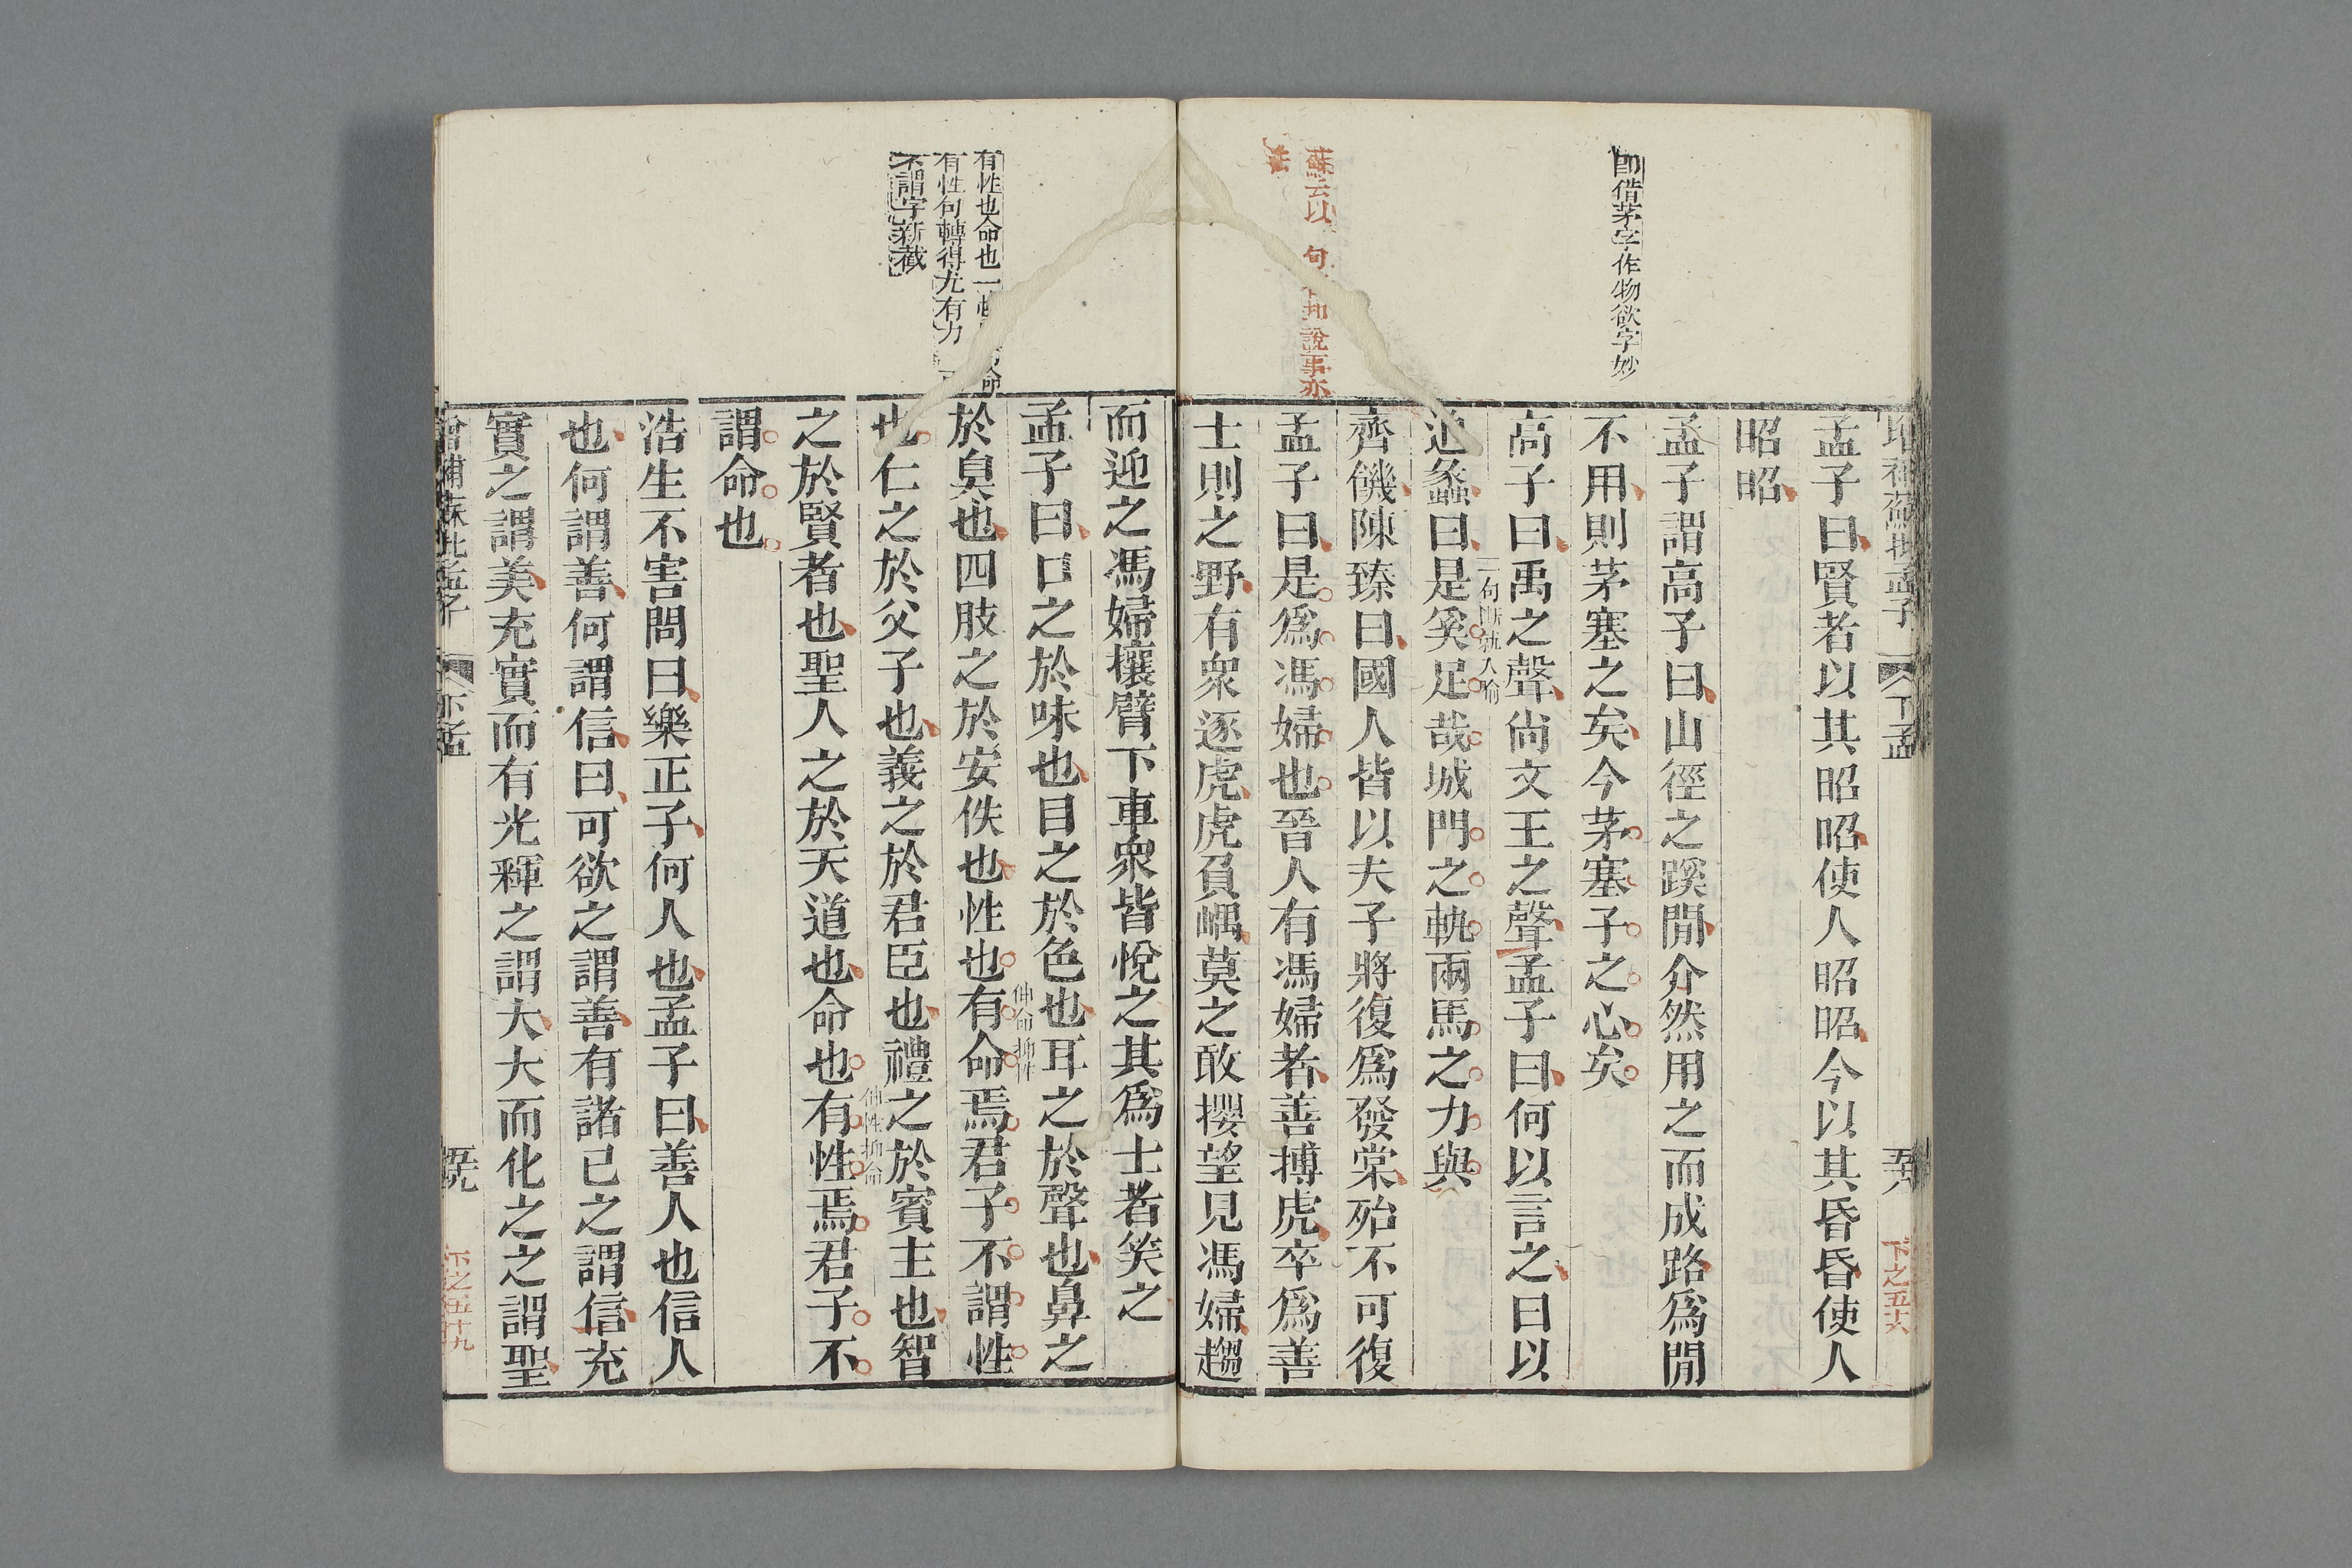 即借茅字作物欲字妙
蘇云以
句
說事亦
法
孟子曰賢者以其昭昭使人昭昭今以其昏昏使人
昭昭
孟子謂高子曰山徑之蹊閒介然用之而成路爲閒
不用則茅塞之矣今茅塞子之心矣
高子曰禹之聲尙文王之聲孟子曰何以言之曰以
二句斷就人喻
追蠡曰是奚足哉城門之軌兩馬之力與
齊饑陳臻曰國人皆以夫子將復爲發棠殆不可復
孟子曰是爲馮婦也晉人有馮婦者善搏虎卒爲善
士則之野有衆逐虎虎負嵎莫之敢攖望見馮婦趨
下孟
下之五十八
有性也命也一
有性句轉得尤有力
不謂字新截
而迎之馮婦攘臂下車衆皆悅之其爲士者笑之
孟子曰口之於味也目之於色也耳之於聲也鼻之
伸命抑性
於臭也四肢之於安佚也性也有命焉君子不謂性
也仁之於父子也義之於君臣也禮之於賓主也智
伸性抑命
之於賢者也聖人之於天道也命也有性焉君子不
謂命也
浩生不害問曰樂正子何人也孟子曰善人也信人
也何謂善何謂信曰可欲之謂善有諸己之謂信充
實之謂美充實而有光輝之謂大大而化之之謂聖
下孟
下之五十九